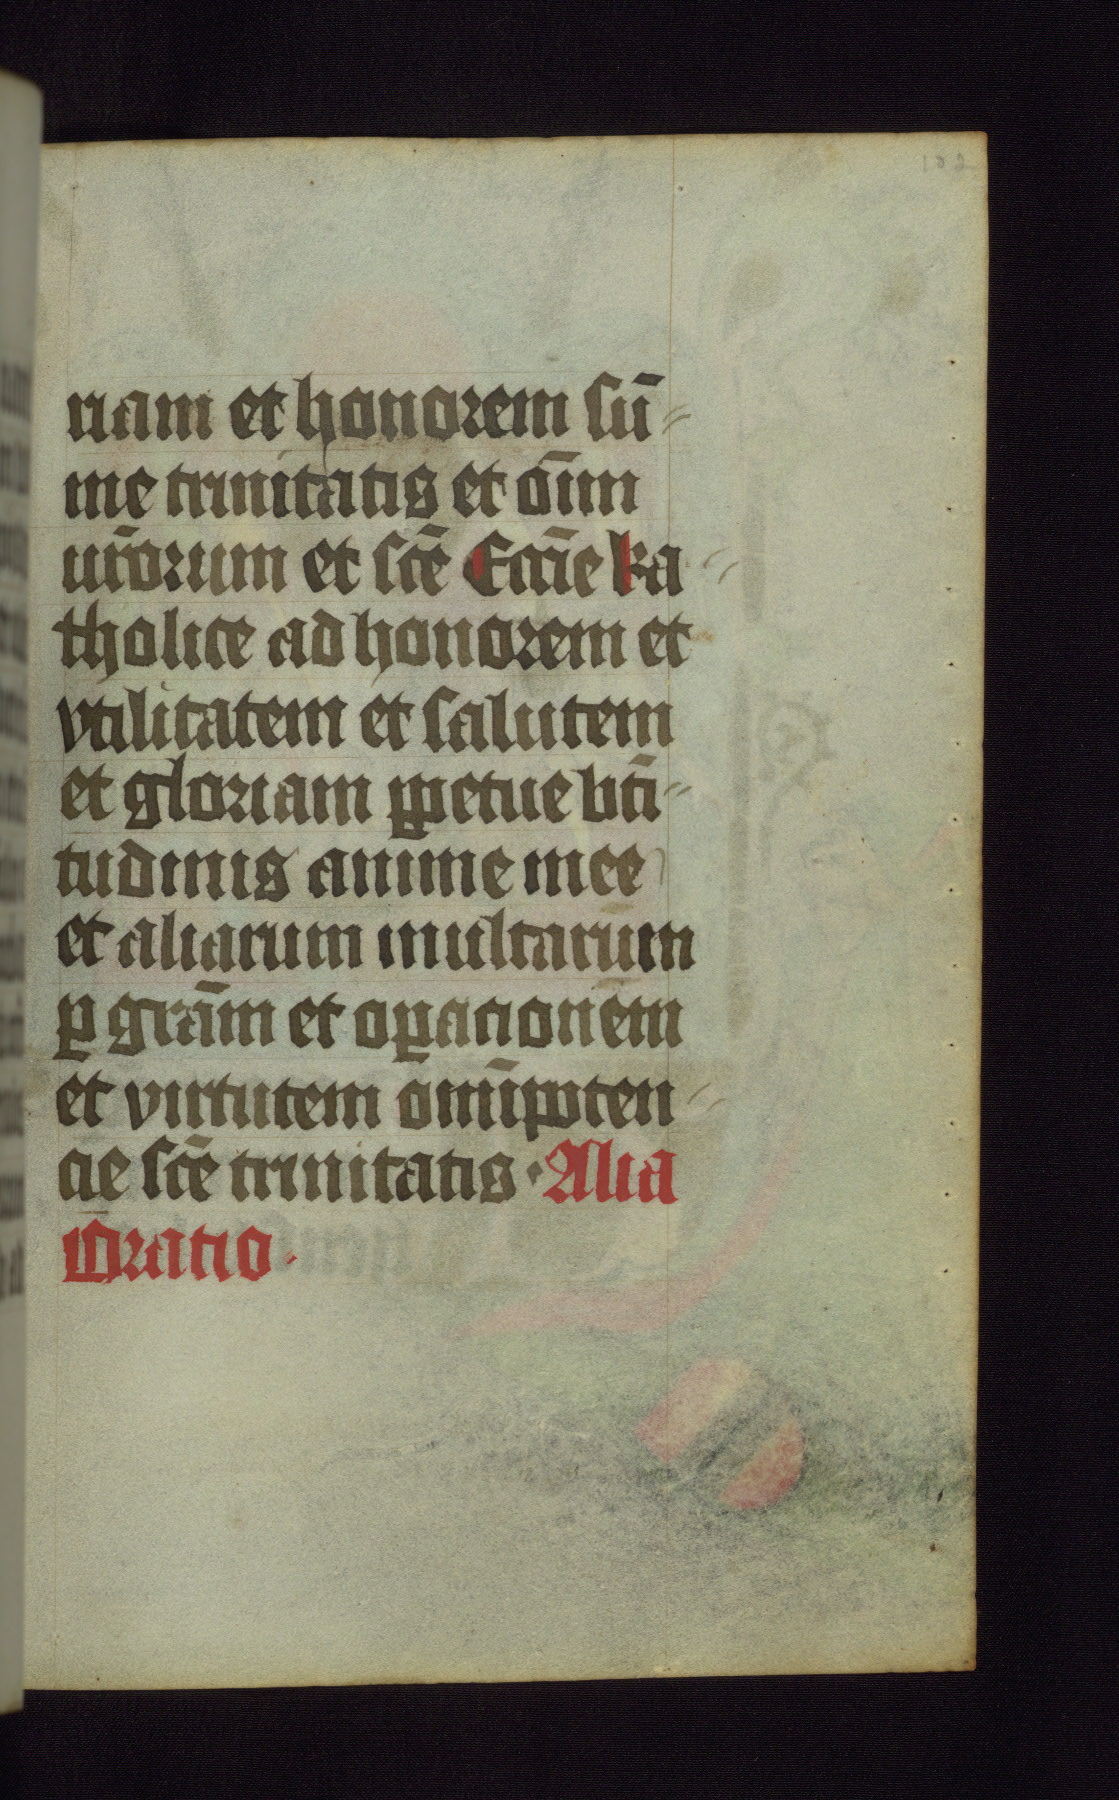 102
riam et honorem su̅-
me trinitatis et o̅im̅
ur̅orum et sc̅e Ecc̅ie ka-
tholice ad honorem et
vtilitatem et salutem
et gloriam ꝑpetue bt̅i-
tudinis anime mee
et aliarum multarum
ꝑ gra̅m et oꝑationem
et virtutem om̅ipoten-
cie sc̅e trinitatis · Alia
Oratio ·